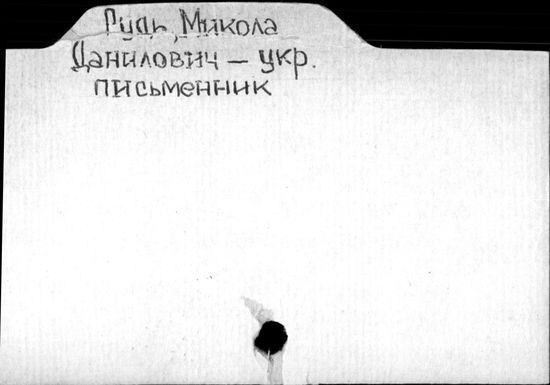 Рудь, Микола
Данилович – укр.
письменник